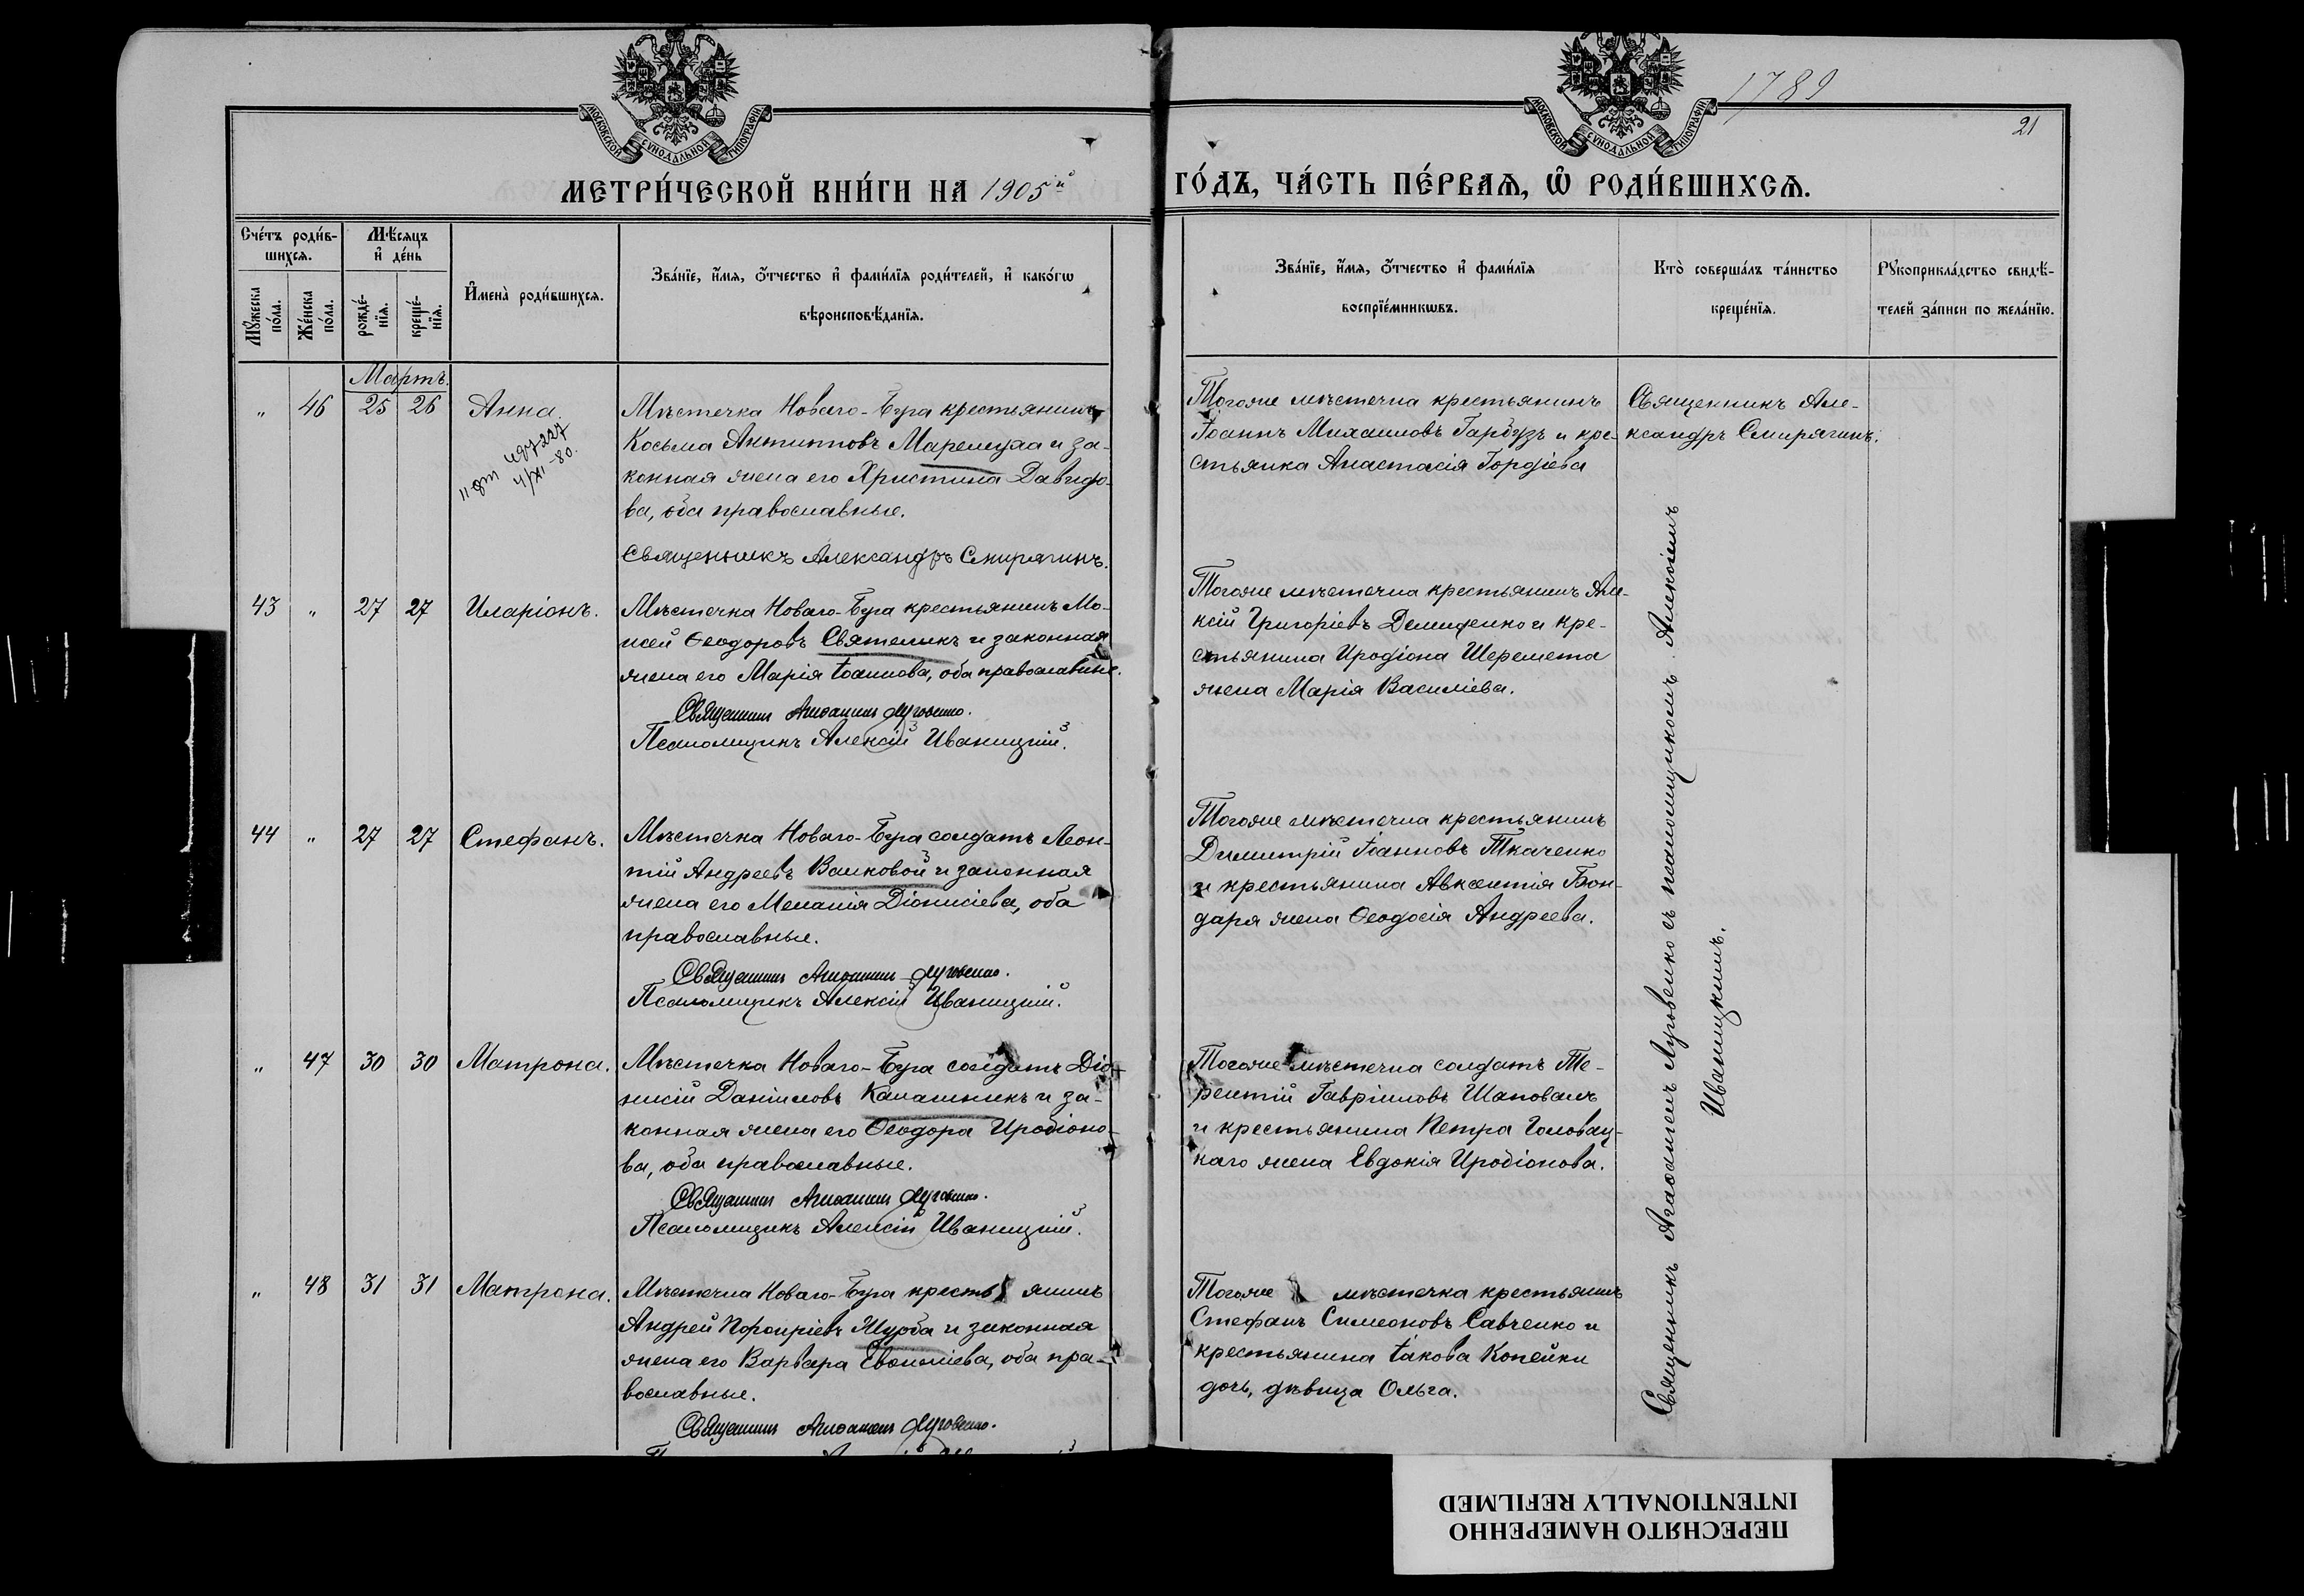 МОСКОВСКОЙ СѴНОДАЛЬНОЙ ТИПОГРАФІИ
МОСКОВСКОЙ СѴНОДАЛЬНОЙ ТИПОГРАФІИ
1789
21
МЕТРИ́ЧЕСКОЙ КНИ́ГИ НА 1905й
ГО́ДЪ, ЧА́СТЬ ПЕ́РВАѦ, Ѽ РОДИ́ВШИХСѦ.
Сче́тъ роди́в-
шихсѧ.
Мꙋ́жеска по́ла.
Же́нска по́ла.
Мѣ́сѧцъ
и҆ де́нь
рожде́-
нїѧ.
креще́-
нїѧ.
И҆мена̀ роди́вшихсѧ.
Зва́нїе, и҆́мѧ, ѻ҆́тчество и҆ фами́лїѧ роди́телей, и҆ како́гѡ
вѣроисповѣ́данїѧ.
Зва́нїе, и҆́мѧ, ѻ҆́тчество и҆ фами́лїѧ
воспрїе́мникѡвъ.
Кто̀ соверша́лъ та́инство
креще́нїѧ.
Рꙋкоприкла́дство свидѣ́-
телей за́писи по жела́нїю.
Мартъ.
" 46 25 26 Анна.
4/XI-80.
Мѣстечка Новаго-Буга крестьянинъ
Косьма Антиповъ Маремуха и за-
конная жена его Христина Давидо-
ва, оба православные.
Священникъ Александръ Смирягинъ.
Тогоже мѣстечка крестьянинъ
Іоаннъ Михаиловъ Гарбузъ и кре-
стьянка Анастасія Гордіева
Священникъ Але-
ксандръ Смирягинъ.
43 " 27 27 Иларіонъ.
Мѣстечка Новаго-Буга крестьянинъ Мо-
исей Ѳеодоровъ Святеликъ и законная
жена его Марія Іоаннова, оба православные.
Священникъ Агаѳангелъ Луговенко.
Псаломщикъ Алексій Иваницкій.
Тогоже мѣстечка крестьянинъ Але-
ксій Григоріевъ Демиденко и кре-
стьянина Иродіона Шеремета
жена Марія Василіева.
44 " 27 27 Стефанъ.
Мѣстечка Новаго-Буга солдатъ Леон-
тій Андреевъ Валковой и законная
жена его Меланія Діонисіева, оба
православные.
Священникъ Агаѳангелъ Луговенко.
Псаломщикъ Алексій Иваницкій.
Тогоже мѣстечка крестьянинъ
Димитрій Іоанновъ Ткаченко
и крестьянина Авксентія Бон-
даря жена Ѳеодосія Андреева.
" 47 30 30 Матрона.
Мѣстечка Новаго-Буга солдатъ Діо-
нисій Даніиловъ Калашникъ и за-
конная жена его Ѳеодора Иродіоно-
ва, оба православные.
Священникъ Агаѳангелъ Луговенко.
Псаломщикъ Алексій Иваницкій.
Тогоже мѣстечка солдатъ Те-
рентій Гавріиловъ Шаповалъ
и крестьянина Петра Головац-
каго жена Евдокія Иродіонова.
" 48 31 31 Матрона.
Мѣстечка Новаго-Буга крестьянинъ
Андрей Порфиріевъ Журба и законная
жена его Варвара Евѳиміева, оба пра-
вославные.
Священникъ Агаѳангелъ Луговенко.
Тогоже мѣстечка крестьянинъ
Стефанъ Симеоновъ Савченко и
крестьянина Іакова Копейки
дочь, дѣвица Ольга.
Священникъ Агаѳангелъ Луговенко съ псаломщикомъ Алексіемъ
Иваницкимъ.
ПЕРЕСНЯТО НАМЕРЕННО
INTENTIONALLY REFILMED